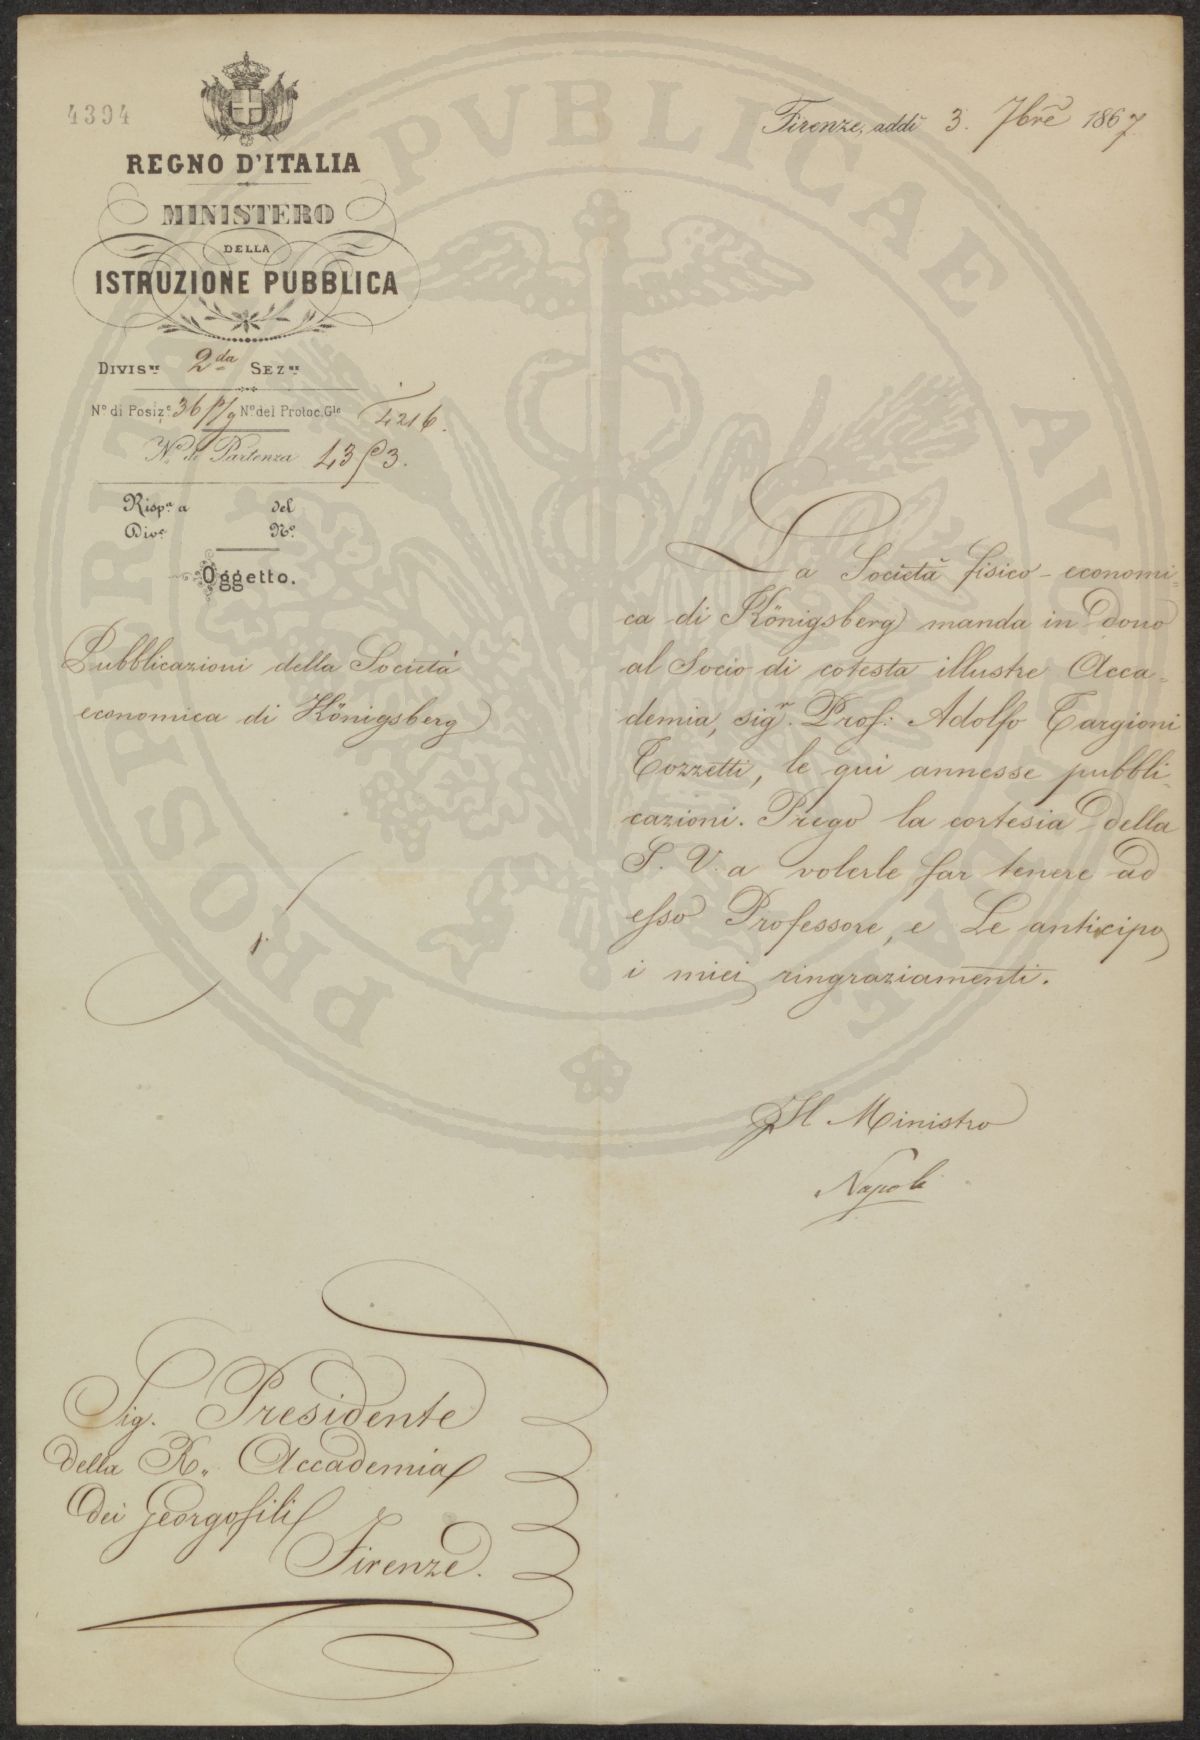 4394
REGNO D'ITALIA
MINISTERO
DELLA
ISTRUZIONE PUBBLICA
Divis.ne 2da Sez.ne
No di Posiz.e 36 P/g No del Protoc. Gle 4216.
No di Partenza 4353.
Risp.a a del
Div.e No.
Oggetto.
Pubblicazioni della Società
economica di Königsberg
Firenze, addì 3. 7bre 1867
La Società fisico-economi=
ca di Königsberg manda in dono
al Socio di cotesta illustre Acca=
demia, sigr. Prof: Adolfo Targioni
Tozzetti, le qui annesse pubbli-
cazioni. Prego la cortesia della
S. V. a volerle far tenere ad
esso Professore, e Le anticipo
i miei ringraziamenti.
Il Ministro
Sig. Presidente
della R. Accademia
dei Georgofili
Firenze.
PROSPERITATI PVBLICAE AVGENDAE